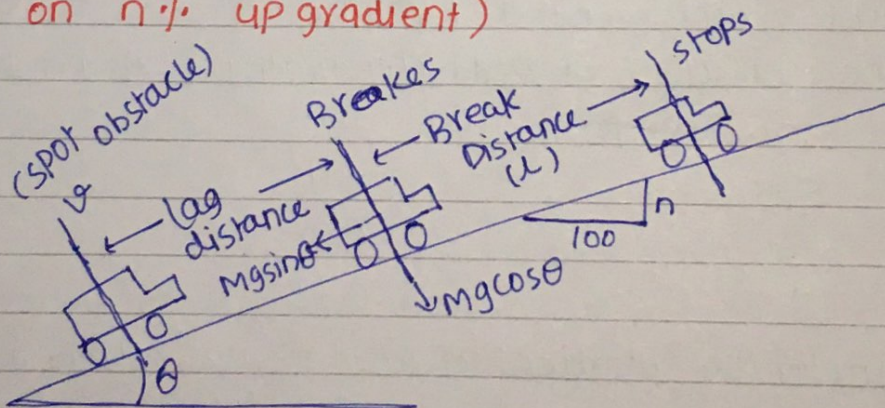 on n% up gradient)
(spot obstacle)
v
Lag
distance
Breakes
Break
Distance
(L)
stops
Mgsinθ
Mgcosθ
n
100
θ